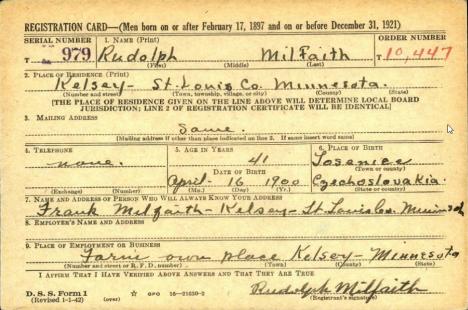 REGISTRATION CARD—(Men born on or after February 17, 1897 and on or before December 31, 1921)
SERIAL NUMBER 1. NAME (Print) ORDER NUMBER
T 979 Rudolph Milfaith T 10,447
(First) (Middle) (Last)
2. PLACE OF RESIDENCE (Print)
Kelsey- St. Louis Co. Minnesota.
(Number and street) (Town, township, village, or city) (County) (State)
[THE PLACE OF RESIDENCE GIVEN ON THE LINE ABOVE WILL DETERMINE LOCAL BOARD
JURISDICTION; LINE 2 OF REGISTRATION CERTIFICATE WILL BE IDENTICAL]
3. MAILING ADDRESS
Same.
(Mailing address if other than place indicated on line 2. If same insert word same)
4. TELEPHONE 5. AGE IN YEARS 6. PLACE OF BIRTH
none. 41
DATE OF BIRTH (Town or county)
April- 16 1900 Czechoslovakia.
(Exchange) (Number) (Mo.) (Day) (Yr.) (State or country)
7. NAME AND ADDRESS OF PERSON WHO WILL ALWAYS KNOW YOUR ADDRESS
Frank Milfaith- Kelsey- St Louis Co.
8. EMPLOYER'S NAME AND ADDRESS
9. PLACE OF EMPLOYMENT OR BUSINESS
Farm own place Kelsey- Minnesota
(Number and street or R. F. D. number) (Town) (County) (State)
I AFFIRM THAT I HAVE VERIFIED ABOVE ANSWERS AND THAT THEY ARE TRUE
D. S. S. Form 1
(Revised 1-1-42) (over) GPO 16—21630-2
Rudolph Milfaith
(Registrant's signature)